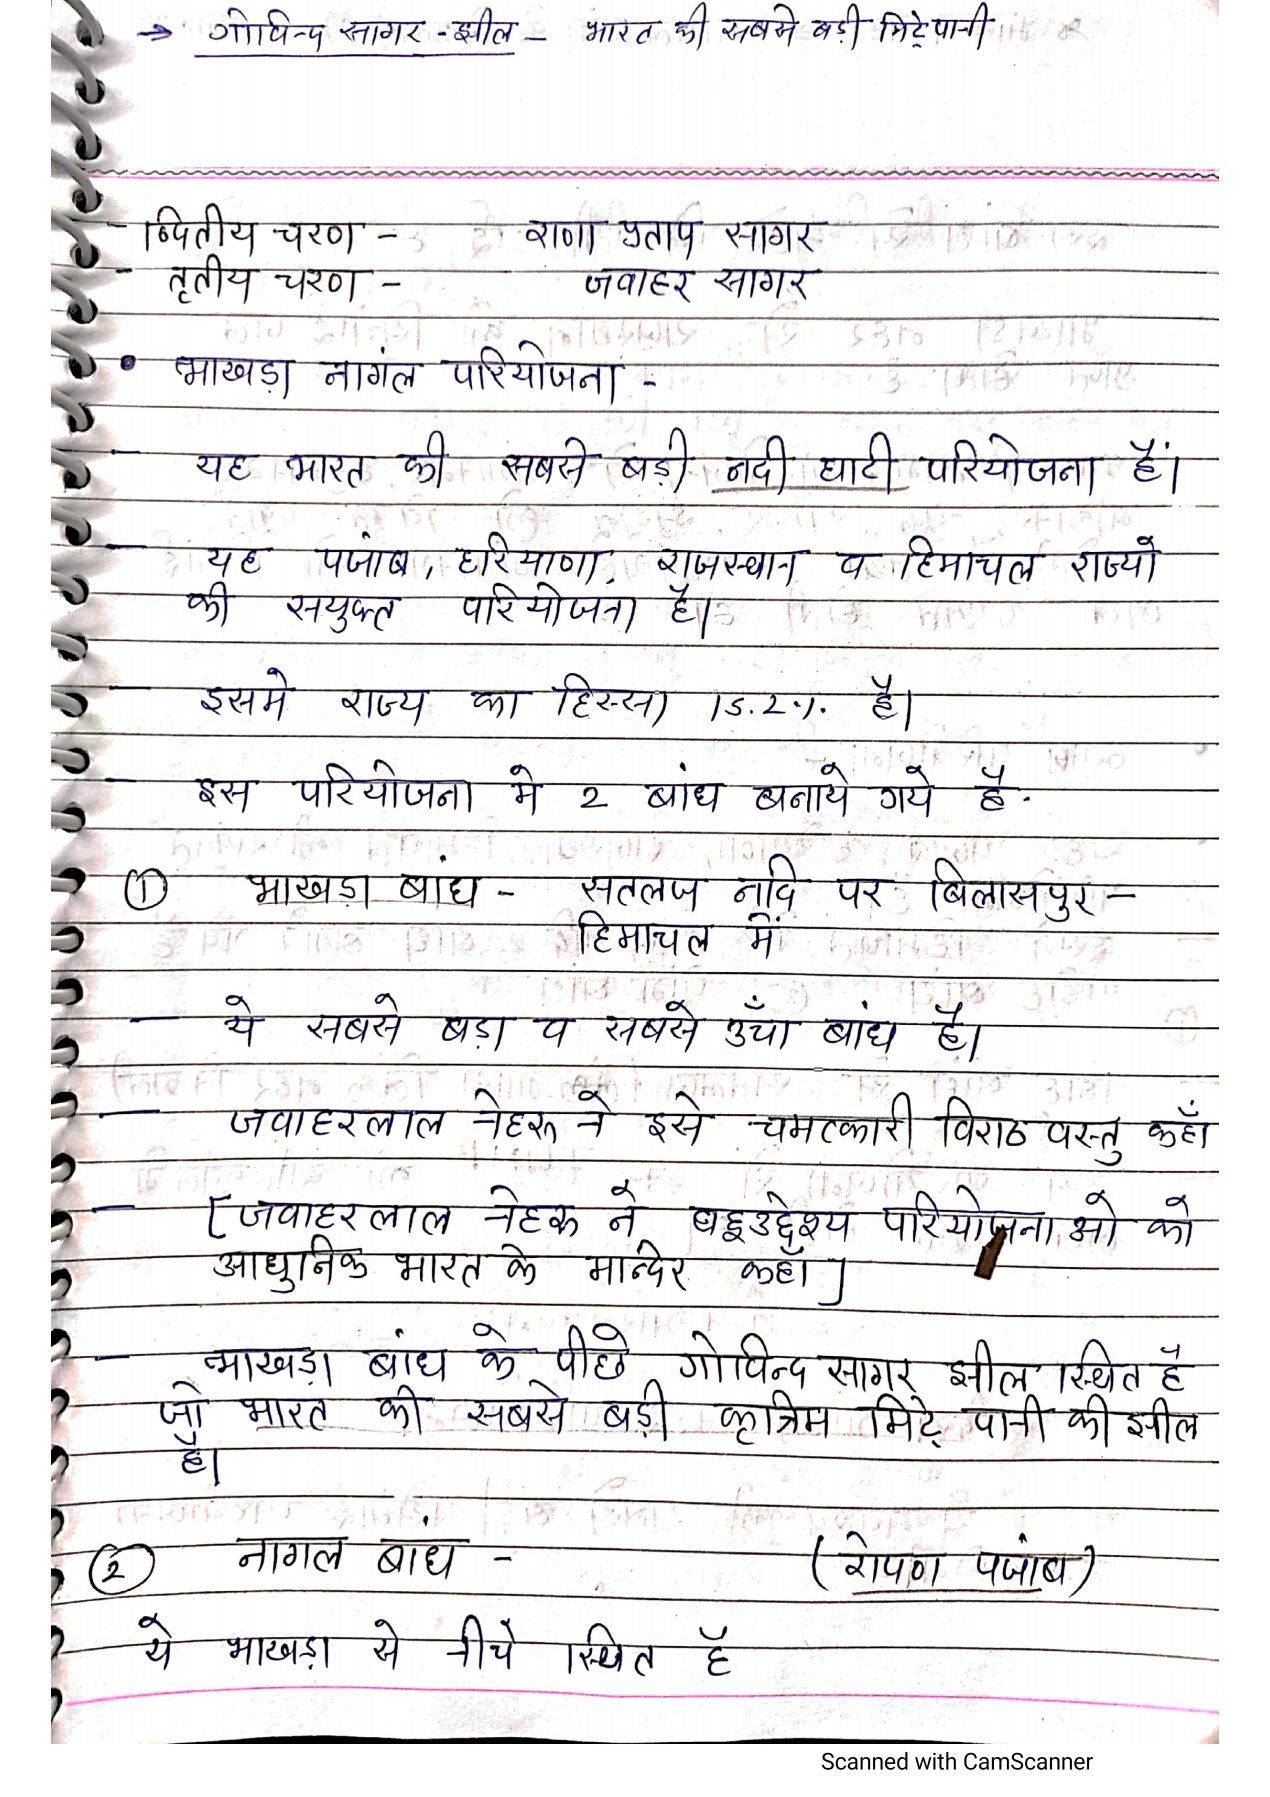 → गोविन्द सागर - झील - भारत की सबसे बड़ी मिठ्रे पानी
- द्वितीय चरण - राणा प्रताप सागर
- तृतीय चरण - जवाहर सागर
• भाखड़ा नागंल परियोजना -
- यह भारत की सबसे बड़ी नदी घाटी परियोजना हैं।
- यह पजांब, हरियाणा, राजस्थान व हिमाचल राज्यो
की सयुक्त परियोजना है।
- इसमे राज्य का हिस्सा 15.2%. है।
- इस परियोजना मे 2 बांध बनाये गये है.
① भाखड़ा बांध - सतलज नदि पर बिलासपुर -
हिमाचल में
- ये सबसे बड़ा व सबसे उँचा बांध है।
- जवाहरलाल नेहरू ने इसे चमत्कारी विराठ वस्तु कहाँ
- [जवाहरलाल नेहरू ने बहुउद्देश्य परियोजनाओ को
आधुनिक भारत के मान्दिर कहाँ]
- भाखड़ा बांध के पीछे गोविन्द सागर झील स्थित है
जो भारत की सबसे बड़ी कृत्रिम मिठ्रे पानी की झील
है।
② नागल बांध - (रोपण पजांब)
ये भाखड़ा से नीचे स्थित है
Scanned with CamScanner